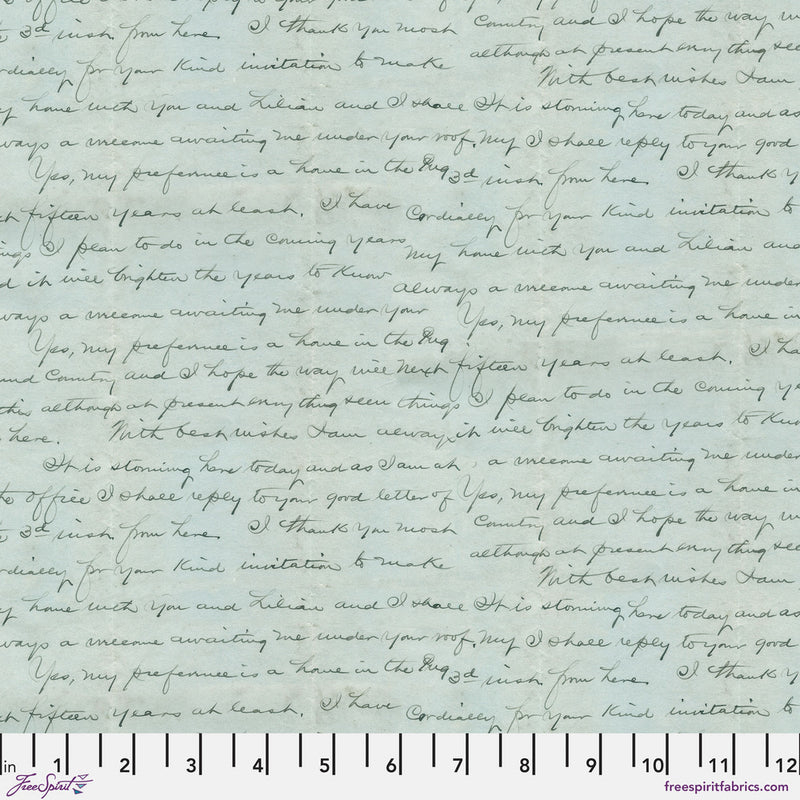 3d inst. from here. I thank you most Country and I hope the way
although at present everything see
rdially for your kind invitation to make
With best wishes I am
y home with you and Lilian and I shall It is storming here today and as
ways a welcome awaiting me under your roof. My I shall reply to your good
Yes, my preference is a home in the 3d inst. from here. I thank y
fifteen years at least. I have Cordially for your kind invitation to
ngs I plan to do in the coming years my home with you and Lilian and
d it will brighten the years to know always a welcome awaiting me under
ways a welcome awaiting me under your Yes, my preference is a home in
Yes, my preference is a home in the
und Country and I hope the way will next fifteen years at least. I ha
this although at present everything seen things I plan to do in the coming ye
here. With best wishes I am always it will brighten the years to know
It is storming here today and as I am at a welcome awaiting me under
office I shall reply to your good letter of Yes, my preference is a home in
3d inst. from here. I thank you most Country and I hope the way
although at present everything see
rdially for your kind invitation to make
With best wishes I am
y home with you and Lilian and I shall It is storming here today and as
ways a welcome awaiting me under your roof. My I shall reply to your good
Yes, my preference is a home in the 3d inst. from here. I thank y
fifteen years at least. I have Cordially for your kind invitation to
in 1 2 3 4 5 6 7 8 9 10 11 12
FreeSpirit
freespiritfabrics.com